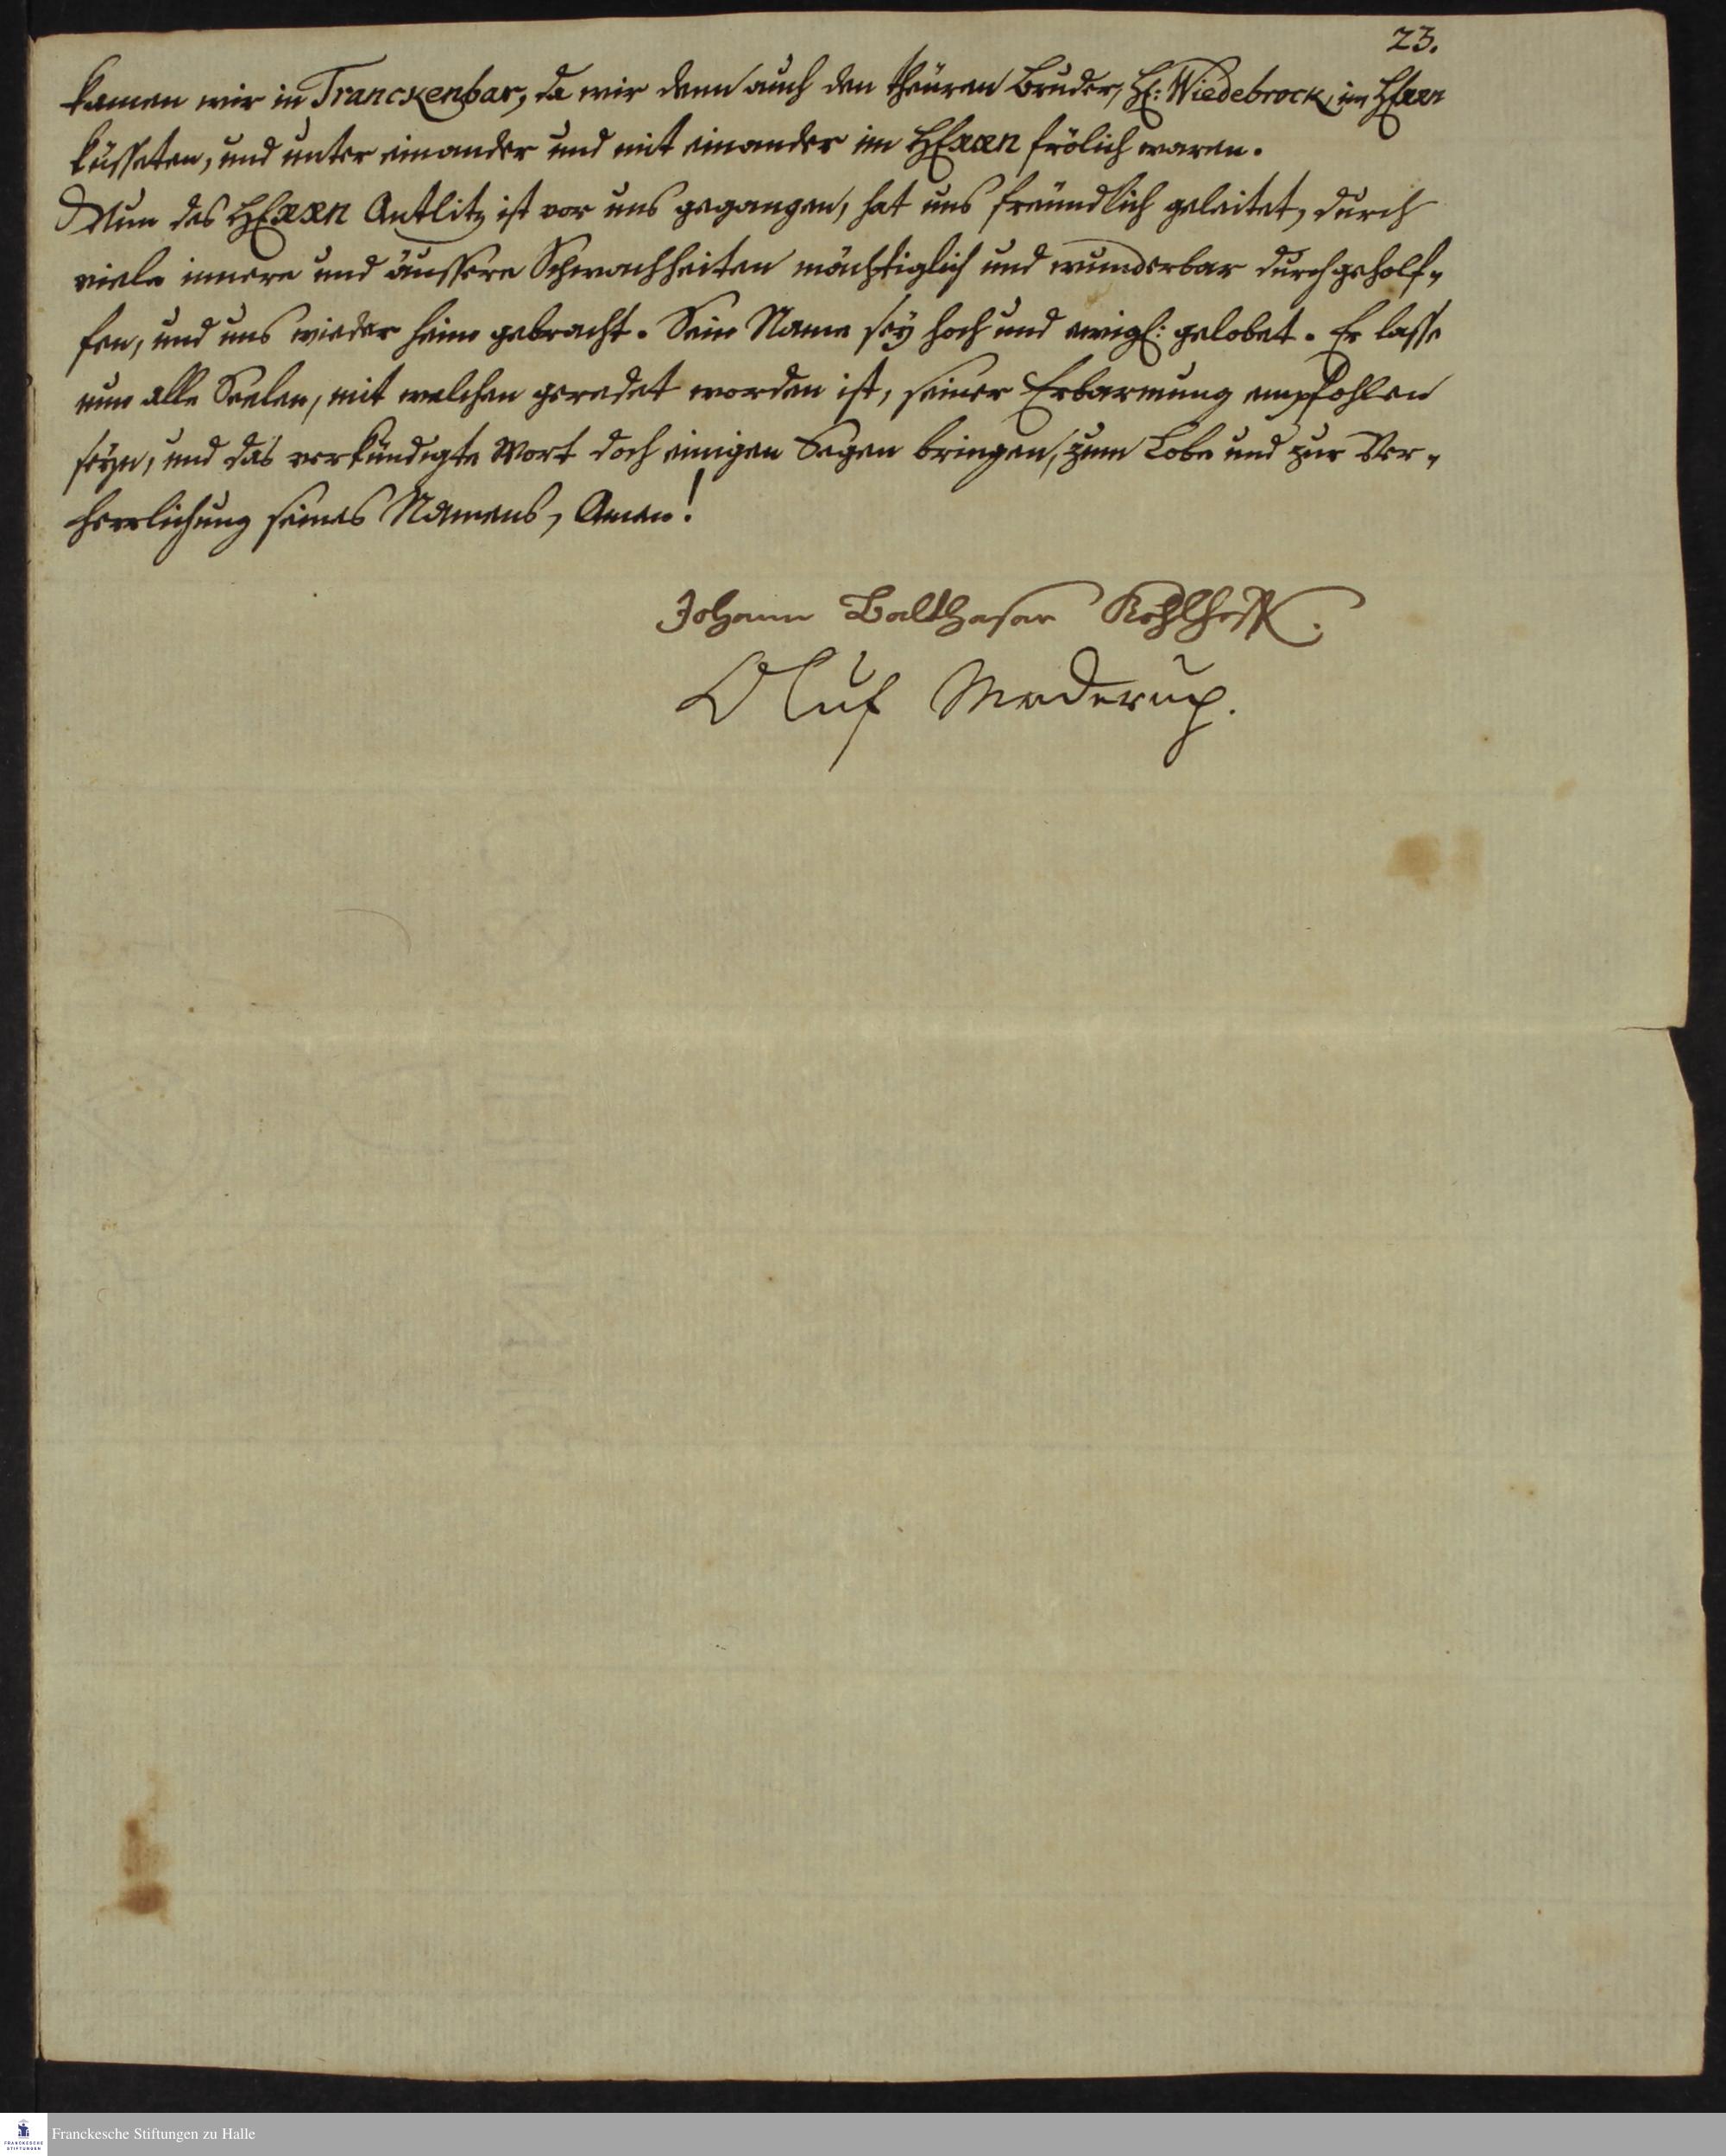 23.
kamen wir in Tranckenbar, da wir denn auch den theuren Bruder, H: Wiedebrock, im HErrn
küsseten, und unter einander und mit einander im HErrn frölich waren.
Nun des HErrn Antlitz ist vor uns gegangen, hat uns freündlich geleitet, durch
viele innere und äussere Schwachheiten mächtiglich und wunderbar durchgeholf-
fen, und uns wieder heim gebracht. Sein Name sey hoch und ewigl: gelobet. Er lasse
nun alle Seelen, mit welchen geredet worden ist, seiner Erbarmung empfohlen
seyn, und das verkündigte Wort doch einigen Segen bringen, zum Lobe und zur Ver-
herrlichung seines Namens, Amen!
Johann Balthasar Kohlhoff.
Oluf Maderup.
Franckesche Stiftungen zu Halle
FRANCKESCHE
STIFTUNGEN